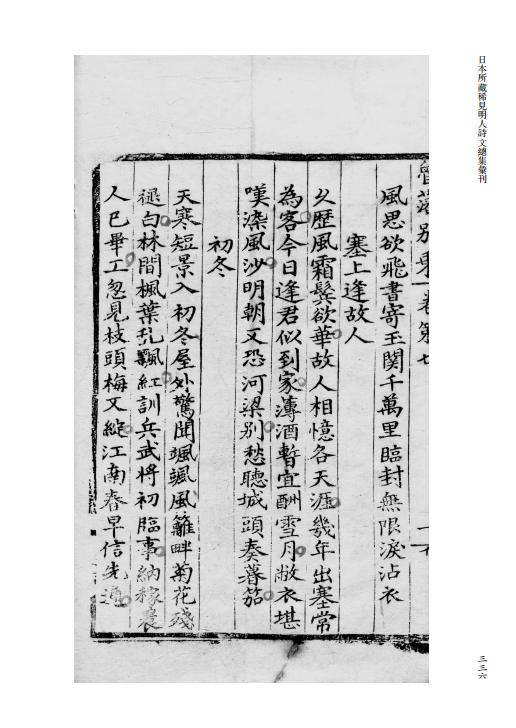 日本所藏稀見明人詩文總集彙刊
風思欲飛書寄玉関千萬里臨封無限淚沾衣
塞上逢故人
久歷風霜鬓欲華故人相憶各天涯幾年出塞常
為客今日逢君似到家薄酒暫宜酬雪月敝衣堪
嘆染風沙明朝又恐河梁别愁聽城頭奏暮笳
初冬
天寒短景入初冬屋外驚聞颯颯風籬畔菊花殘
褪白林間楓葉乱飄紅訓兵武将初臨事納稼農
人已畢工忽見枝頭梅又綻江南春早信先通
三三六